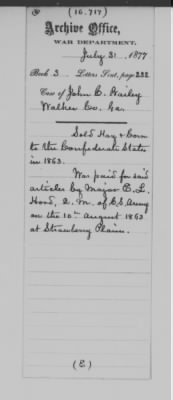 (16.717)
Archive Office,
WAR DEPARTMENT.
July 31 1877
Book 3 Letters Sent, page 232
Case of John C. Hailey
Walker Co. Ga.
Sold Hay & Corn
to the Confederate States
in 1863.
Was paid for said
articles by Major C. L.
Hood, Q. M. of C. S. Army
on the 10th August 1863
at Plain.
(E)